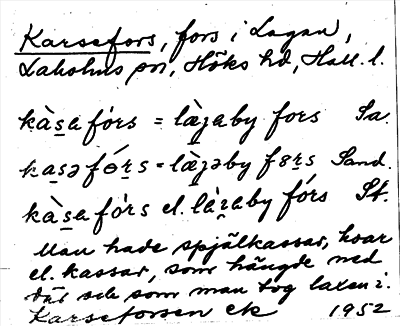 Karsefors, fors i Lagan,
Laholms sn, Höks hd, Hall. l.
kàsa fórs = lầʒaby fors Sa.
kasə fórs = lầʒəby fors Sand.
kàsa fórs el. làʒaby fórs St.
Man hade spjälkassar, kvar
el. kassar, som hängde ned
där och som man tog laxen i.
Karseforsen ek 1952